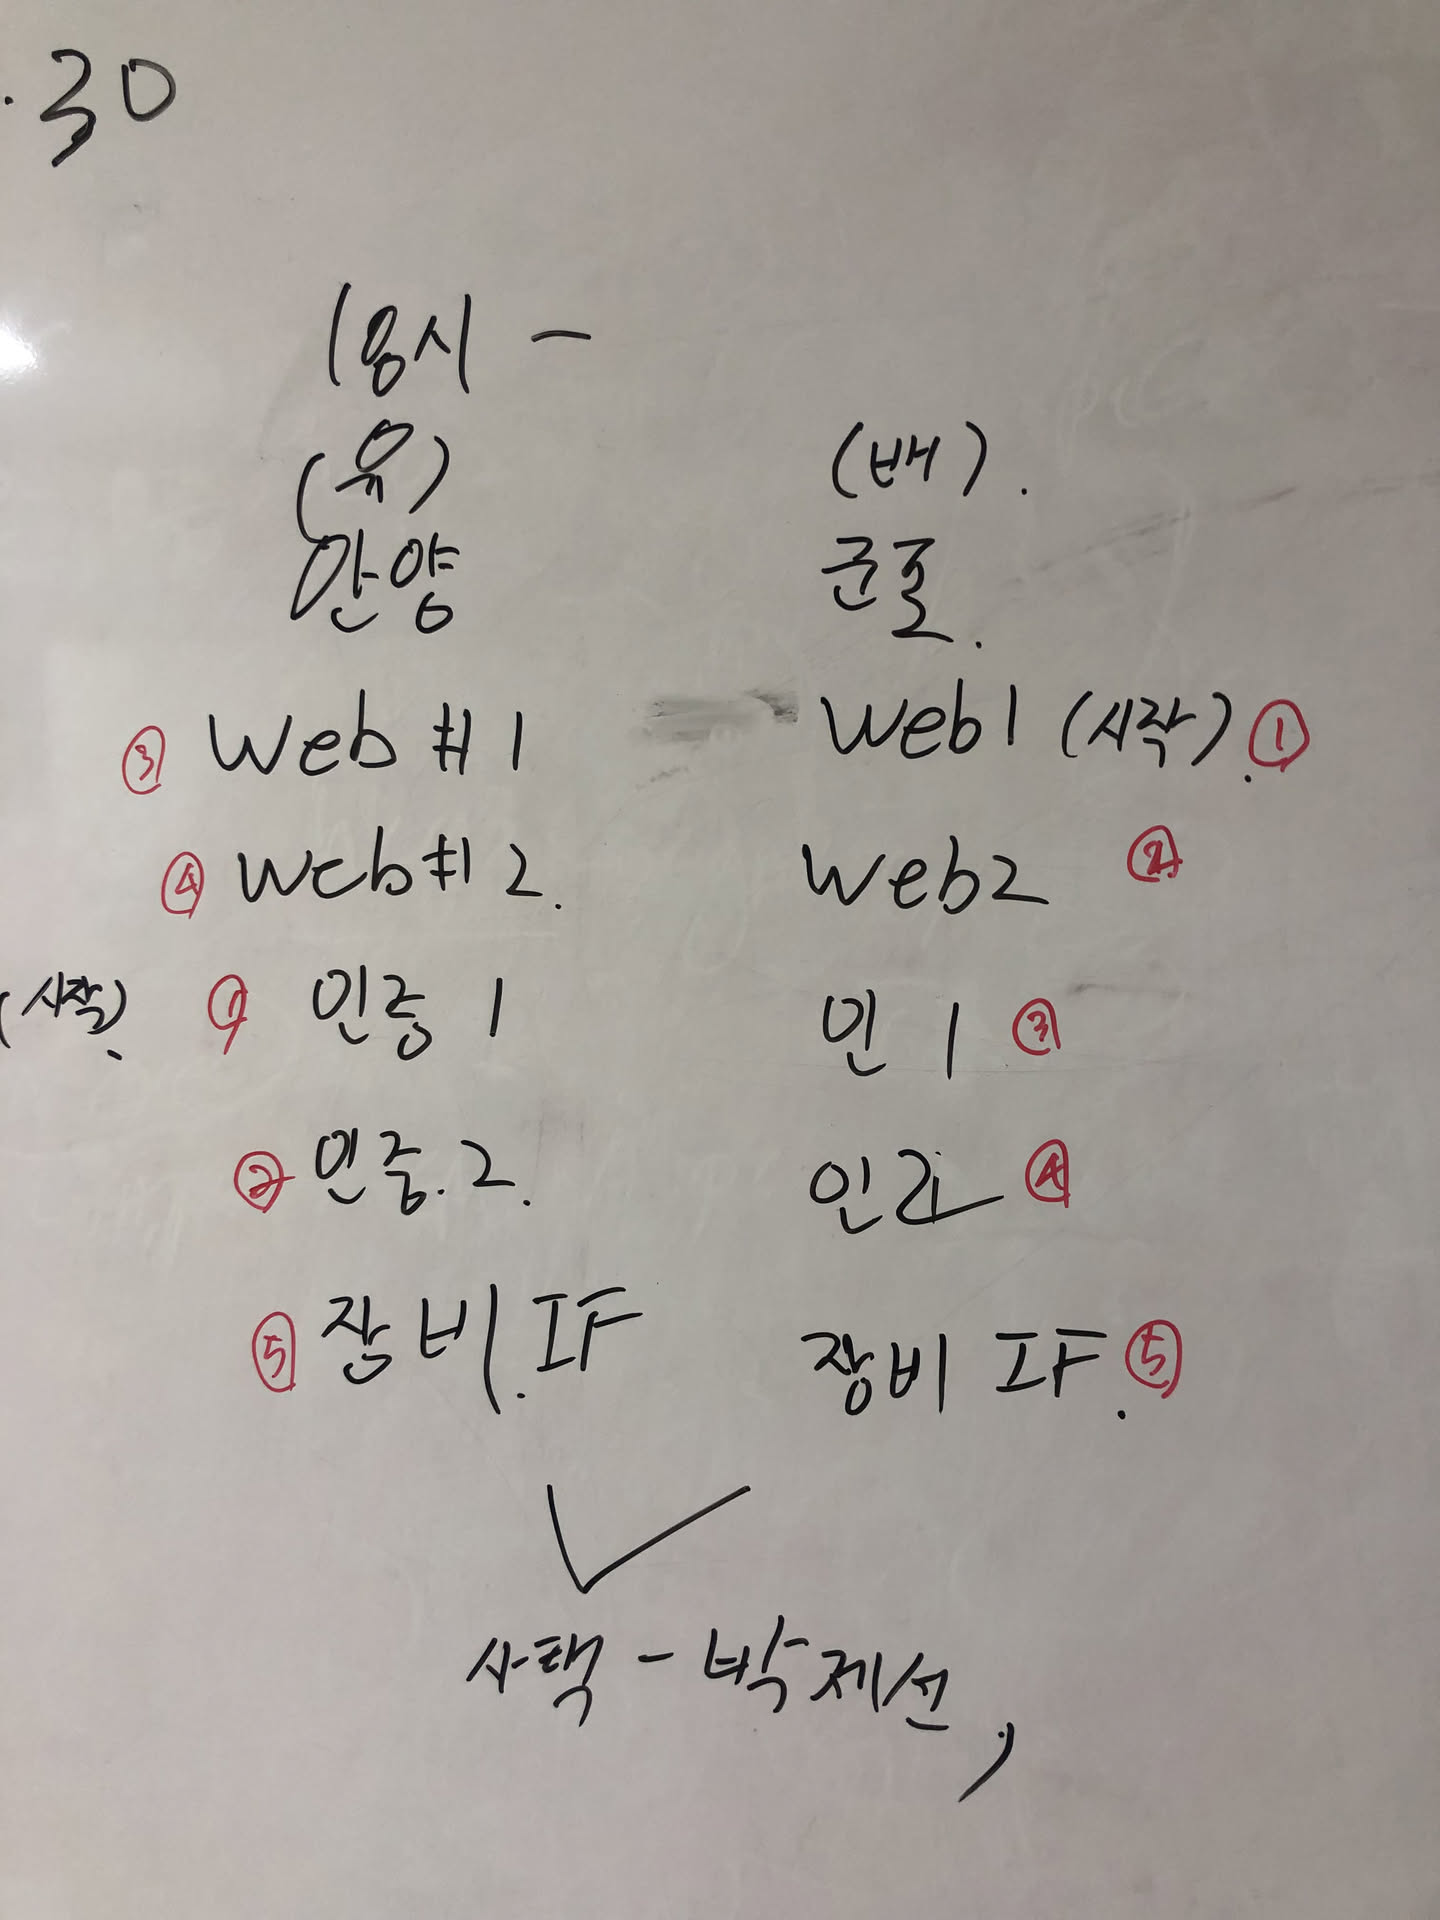 .30
18시 -
(유) (배).
안양 군포.
③ Web #1 Web1 (시작). ①
④ Web#2. Web2 ②
(시작). ① 인증 1 인 1 ③
② 인증.2. 인2 ④
⑤ 장비.IF 장비 IF. ⑤
사택 - 박제선,